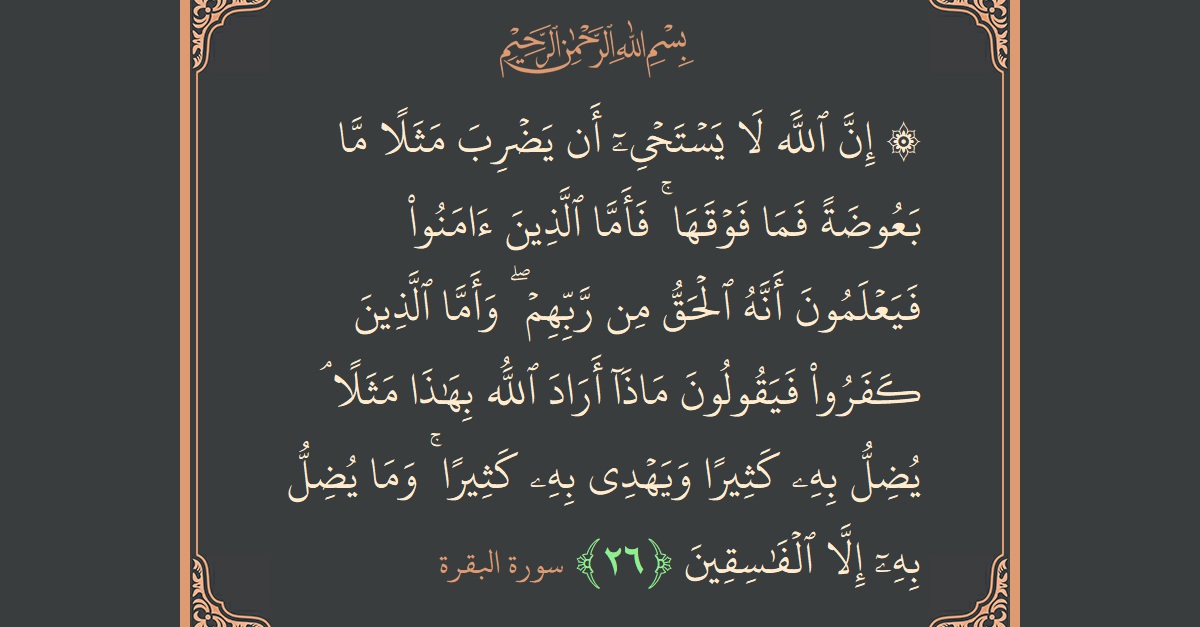 بِسْمِ ٱللَّهِ ٱلرَّحْمَٰنِ ٱلرَّحِيمِ
۞ إِنَّ ٱللَّهَ لَا يَسْتَحْىِۦٓ أَن يَضْرِبَ مَثَلًا مَّا
بَعُوضَةً فَمَا فَوْقَهَا ۚ فَأَمَّا ٱلَّذِينَ ءَامَنُوا۟
فَيَعْلَمُونَ أَنَّهُ ٱلْحَقُّ مِن رَّبِّهِمْ ۖ وَأَمَّا ٱلَّذِينَ
كَفَرُوا۟ فَيَقُولُونَ مَاذَآ أَرَادَ ٱللَّهُ بِهَٰذَا مَثَلًا ۘ
يُضِلُّ بِهِۦ كَثِيرًا وَيَهْدِى بِهِۦ كَثِيرًا ۚ وَمَا يُضِلُّ
بِهِۦٓ إِلَّا ٱلْفَٰسِقِينَ ﴿٢٦﴾ سورة البقرة